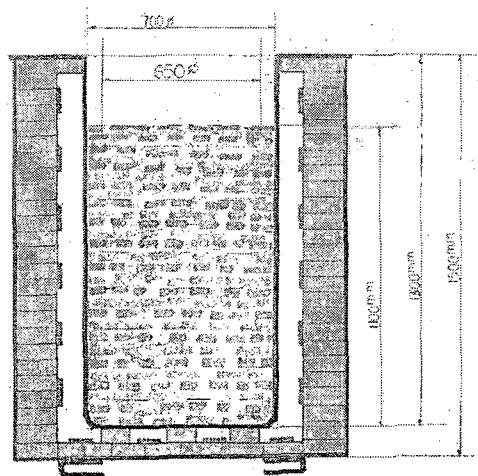 700ø
650ø
1100mm
1300mm
1500mm